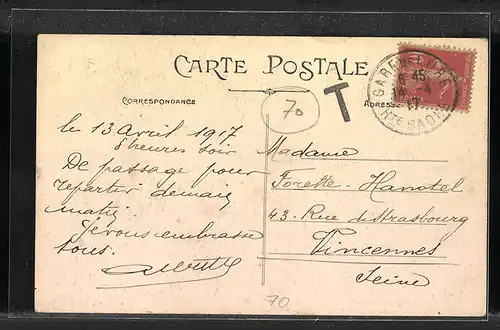 CARTE POSTALE
CORRESPONDANCE
ADRESSE
70
T
GARE DE
8 45
14 - 4
17
HTE SAONE
le 13 Avril 1917
8 heures soir
De passage pour
repartir demain
matin
Je vous embrasse
tous.
Madame
Forette-Hanotel
43. Rue de Strasbourg
Vincennes
Seine
70